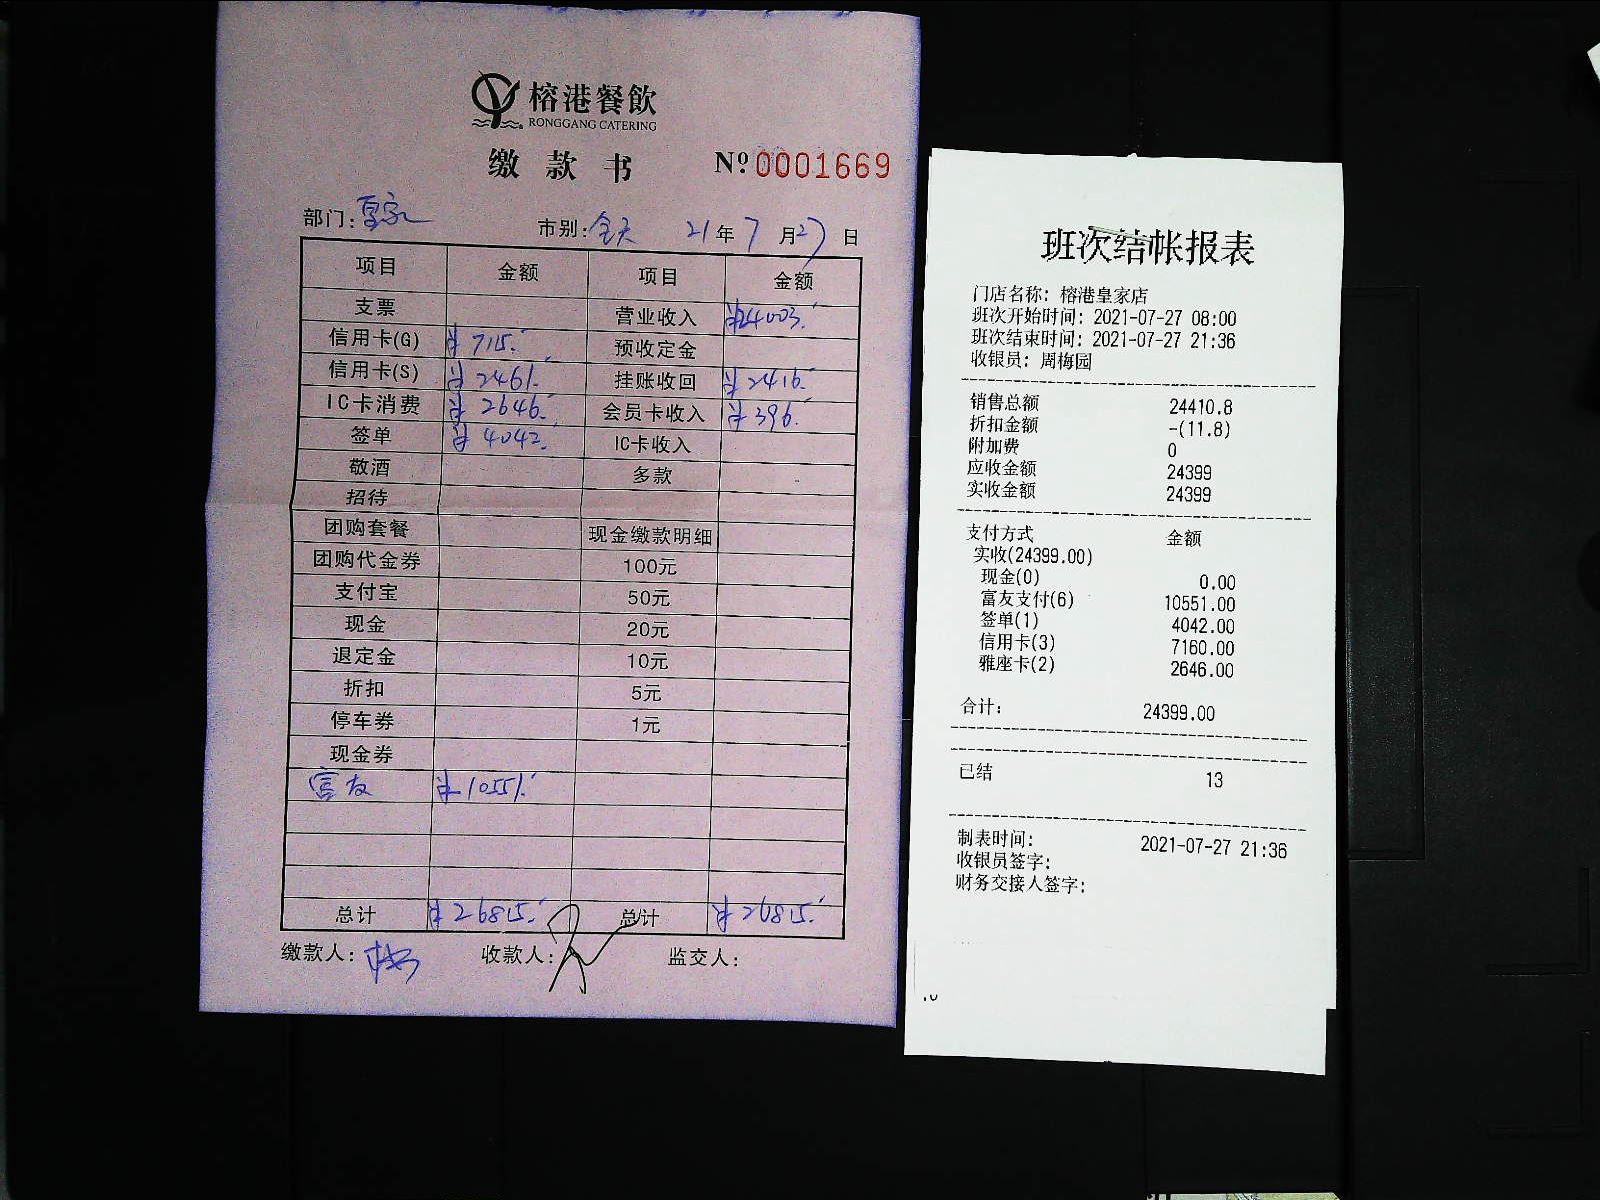 榕港餐飲
RONGGANG CATERING
缴款书 Nº 0001669
部门:皇家 市别:全天 21年7月27日
项目 金额 项目 金额
支票 营业收入 ¥24003.-
信用卡(G) ¥7115.- 预收定金
信用卡(S) ¥2461.- 挂账收回 ¥2416.-
IC卡消费 ¥2646.- 会员卡收入 ¥396.-
签单 ¥4042.- IC卡收入
敬酒 多款
招待
团购套餐 现金缴款明细
团购代金券 100元
支付宝 50元
现金 20元
退定金 10元
折扣 5元
停车券 1元
现金券
富友 ¥10551.-
总计 ¥26815.- 总计 ¥26815.-
缴款人: 收款人: 监交人:
班次结帐报表
门店名称: 榕港皇家店
班次开始时间: 2021-07-27 08:00
班次结束时间: 2021-07-27 21:36
收银员: 周梅园
销售总额 24410.8
折扣金额 -(11.8)
附加费 0
应收金额 24399
实收金额 24399
支付方式 金额
实收(24399.00)
现金(0) 0.00
富友支付(6) 10551.00
签单(1) 4042.00
信用卡(3) 7160.00
雅座卡(2) 2646.00
合计: 24399.00
已结 13
制表时间: 2021-07-27 21:36
收银员签字:
财务交接人签字: